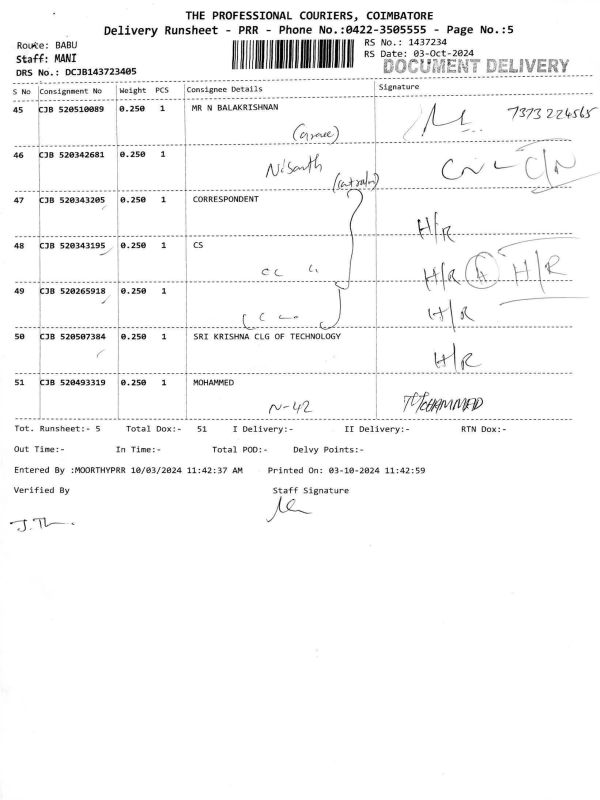 THE PROFESSIONAL COURIERS, COIMBATORE
Delivery Runsheet - PRR - Phone No.:0422-3505555 - Page No.:5
Route: BABU
RS No.: 1437234
Staff: MANI
RS Date: 03-Oct-2024
DRS No.: DCJB143723405
DOCUMENT DELIVERY
S No Consignment No Weight PCS Consignee Details Signature
45 CJB 520510089 0.250 1 MR N BALAKRISHNAN 7373224565
46 CJB 520342681 0.250 1
Nisanth
47 CJB 520343205 0.250 1 CORRESPONDENT
H/R
48 CJB 520343195 0.250 1 CS
H/R H/R
49 CJB 520265918 0.250 1
H/R
50 CJB 520507384 0.250 1 SRI KRISHNA CLG OF TECHNOLOGY
H/R
51 CJB 520493319 0.250 1 MOHAMMED
N-42 MOHAMMED
Tot. Runsheet:- 5 Total Dox:- 51 I Delivery:- II Delivery:- RTN Dox:-
Out Time:- In Time:- Total POD:- Delvy Points:-
Entered By :MOORTHYPRR 10/03/2024 11:42:37 AM Printed On: 03-10-2024 11:42:59
Verified By Staff Signature